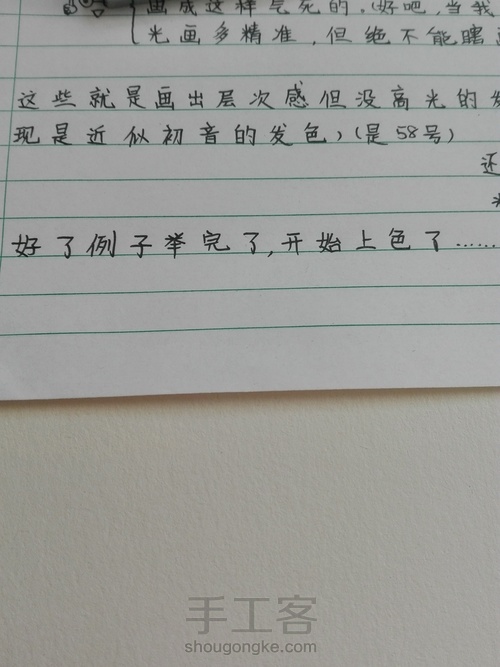 画成这样气死的.(好吧,当我
光画多精准,但绝不能瞎
这些就是画出层次感但没高光的发
现是近似初音的发色,(是58号)
还
好了例子举完了,开始上色了……
手工客
shougongke.com